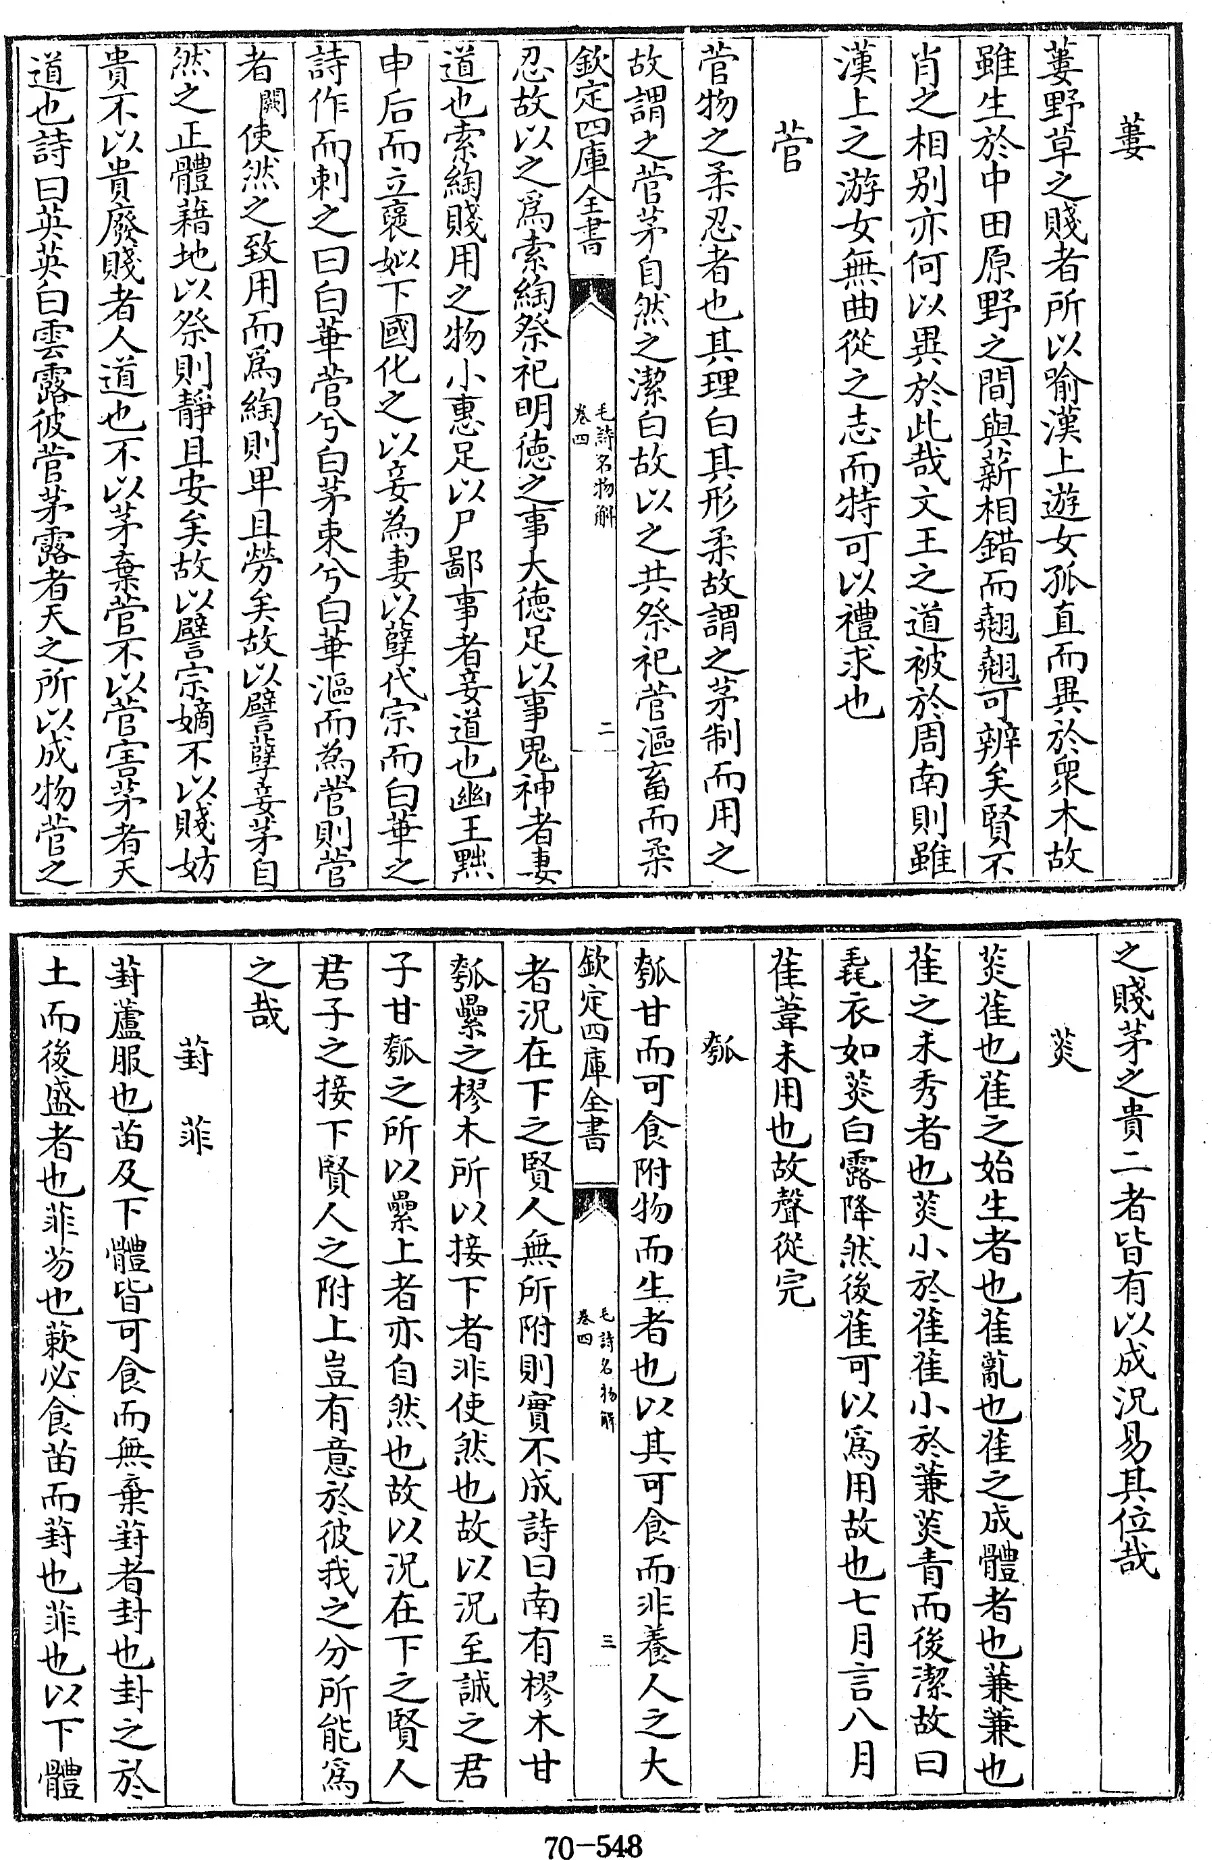 蔞
蔞野草之賤者所以喻漢上遊女孤直而異於衆木故
雖生於中田原野之間與薪相錯而翹翹可辨矣賢不
肖之相别亦何以異於此哉文王之道被於周南則雖
漢上之游女無曲從之志而特可以禮求也
菅
菅物之柔忍者也其理白其形柔故謂之茅制而用之
故謂之菅茅自然之潔白故以之共祭祀菅漚畜而柔
欽定四庫全書
毛詩名物解
卷四
二
忍故以之爲索綯祭祀明徳之事大徳足以事鬼神者妻
道也索綯賤用之物小惠足以尸鄙事者妾道也幽王黜
申后而立褒姒下國化之以妾為妻以孽代宗而白華之
詩作而刺之曰白華菅兮白茅束兮白華漚而為菅則菅
者闕使然之致用而爲綯則卑且勞矣故以譬孽妾茅自
然之正體藉地以祭則靜且安矣故以譬宗嫡不以賤妨
貴不以貴廢賤者人道也不以茅棄菅不以菅害茅者天
道也詩曰英英白雲露彼菅茅露者天之所以成物菅之
之賤茅之貴二者皆有以成況易其位哉
菼
菼萑也萑之始生者也萑薍也萑之成體者也蒹蒹也
萑之未秀者也菼小於萑萑小於蒹菼青而後潔故曰
毳衣如菼白露降然後萑可以爲用故也七月言八月
萑葦未用也故聲從完
瓠
瓠甘而可食附物而生者也以其可食而非養人之大
欽定四庫全書
毛詩名物解
卷四
三
者況在下之賢人無所附則實不成詩曰南有樛木甘
瓠纍之樛木所以接下者非使然也故以況至誠之君
子甘瓠之所以纍上者亦自然也故以況在下之賢人
君子之接下賢人之附上豈有意於彼我之分所能爲
之哉
葑　菲
葑蘆服也苗及下體皆可食而無棄葑者封也封之於
土而後盛者也菲芴也蔌必食苗而葑也菲也以下體
70-548